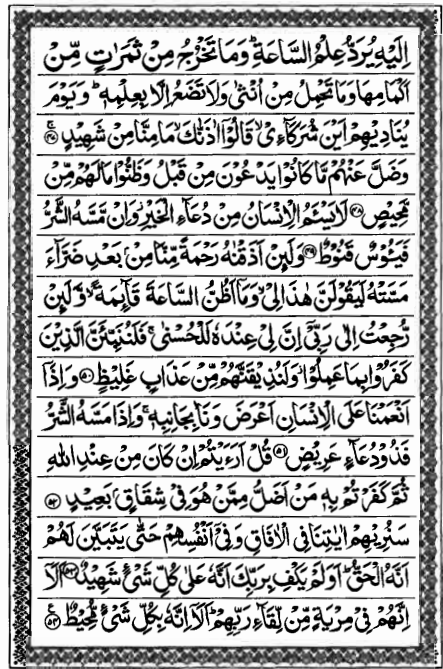 اِلَيْهِ يُرَدُّ عِلْمُ السَّاعَةِ ؕ وَمَا تَخْرُجُ مِنْ ثَمَرٰتٍ مِّنْ
اَكْمَامِهَا وَمَا تَحْمِلُ مِنْ اُنْثٰى وَلَا تَضَعُ اِلَّا بِعِلْمِهٖ ؕ وَيَوْمَ
يُنَادِيْهِمْ اَيْنَ شُرَكَآءِىْ ۙ قَالُوْۤا اٰذَنّٰكَ ۙ مَا مِنَّا مِنْ شَهِيْدٍ ﴿۴۷﴾
وَضَلَّ عَنْهُمْ مَّا كَانُوْا يَدْعُوْنَ مِنْ قَبْلُ وَظَنُّوْا مَا لَهُمْ مِّنْ
مَّحِيْصٍ ﴿۴۸﴾ لَا يَسْـَٔمُ الْاِنْسَانُ مِنْ دُعَآءِ الْخَيْرِ وَاِنْ مَّسَّهُ الشَّرُّ
فَيَـُٔوْسٌ قَنُوْطٌ ﴿۴۹﴾ وَلَئِنْ اَذَقْنٰهُ رَحْمَةً مِّنَّا مِنْۢ بَعْدِ ضَرَّآءَ
مَسَّتْهُ لَيَقُوْلَنَّ هٰذَا لِىْ ۙ وَمَاۤ اَظُنُّ السَّاعَةَ قَآئِمَةً ۙ وَّلَئِنْ
رُّجِعْتُ اِلٰى رَبِّىْۤ اِنَّ لِىْ عِنْدَهٗ لَلْحُسْنٰى ۚ فَلَنُنَبِّئَنَّ الَّذِيْنَ
كَفَرُوْا بِمَا عَمِلُوْا ؗ وَلَنُذِيْقَنَّهُمْ مِّنْ عَذَابٍ غَلِيْظٍ ﴿۵۰﴾ وَاِذَاۤ
اَنْعَمْنَا عَلَى الْاِنْسَانِ اَعْرَضَ وَنَاٰ بِجَانِبِهٖ ۚ وَاِذَا مَسَّهُ الشَّرُّ
فَذُوْ دُعَآءٍ عَرِيْضٍ ﴿۵۱﴾ قُلْ اَرَءَيْتُمْ اِنْ كَانَ مِنْ عِنْدِ اللّٰهِ
ثُمَّ كَفَرْتُمْ بِهٖ مَنْ اَضَلُّ مِمَّنْ هُوَ فِىْ شِقَاقٍۭ بَعِيْدٍ ﴿۵۲﴾
سَنُرِيْهِمْ اٰيٰتِنَا فِى الْاٰفَاقِ وَفِىْۤ اَنْفُسِهِمْ حَتّٰى يَتَبَيَّنَ لَهُمْ
اَنَّهُ الْحَقُّ ؕ اَوَلَمْ يَكْفِ بِرَبِّكَ اَنَّهٗ عَلٰى كُلِّ شَىْءٍ شَهِيْدٌ ﴿۵۳﴾ اَلَاۤ
اِنَّهُمْ فِىْ مِرْيَةٍ مِّنْ لِّقَآءِ رَبِّهِمْ ؕ اَلَاۤ اِنَّهٗ بِكُلِّ شَىْءٍ مُّحِيْطٌ ﴿۵۴﴾